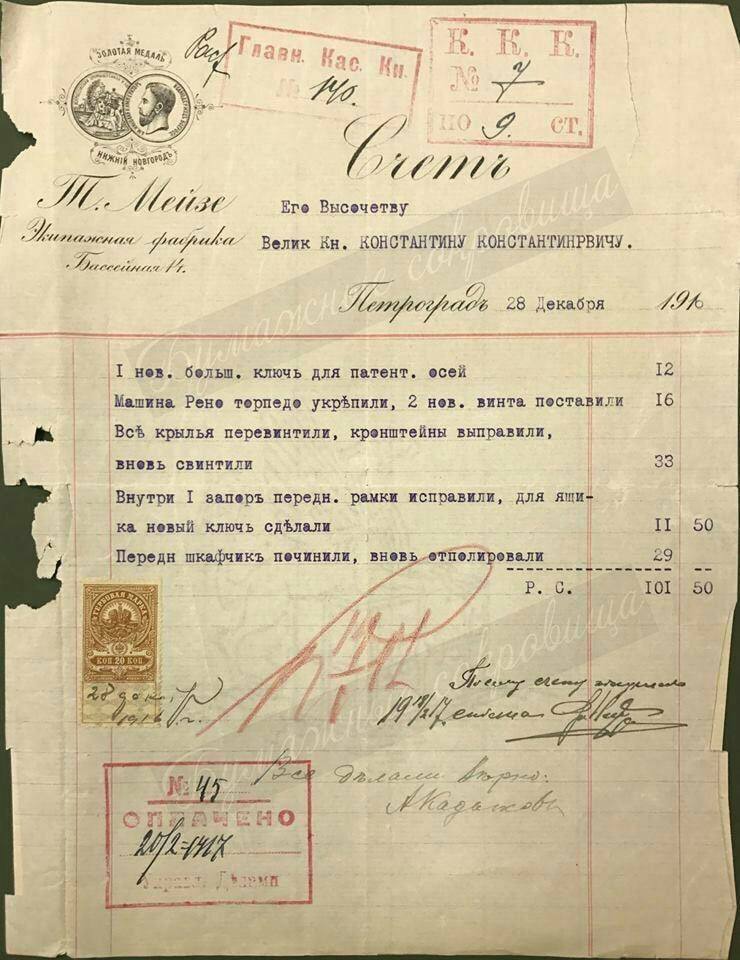 ЗОЛОТАЯ МЕДАЛЬ
НИЖНІЙ НОВГОРОДЪ
Главн. Кас. Кн.
№ 140.
К. К. К.
№ 7
ПО 9. СТ.
Счетъ
Т. Мейзе
Экипажная фабрика
Бассейная 14.
Его Высочетву
Велик Кн. КОНСТАНТИНУ КОНСТАНТИНРВИЧУ.
Петроградъ 28 Декабря 1916
I нов. больш. ключь для патент. осей 12
Машина Рено торпедо укрѣпили, 2 нов. винта поставили 16
Всѣ крылья перевинтили, кронштейны выправили,
вновь свинтили 33
Внутри I запоръ передн. рамки исправили, для ящи-
ка новый ключь сдѣлали II 50
Передн шкафчикъ починили, вновь отполировали 29
Р. С. IOI 50
ГЕРБОВАЯ МАРКА
КОП 20 КОП
28 дек.
1916 г.
По сему счету получилъ
Все дѣлали вѣрно.
№ 45
ОПЛАЧЕНО
20/2=1917
Управл. Дѣлами
Бумажные сокровища
Бумажные сокровища